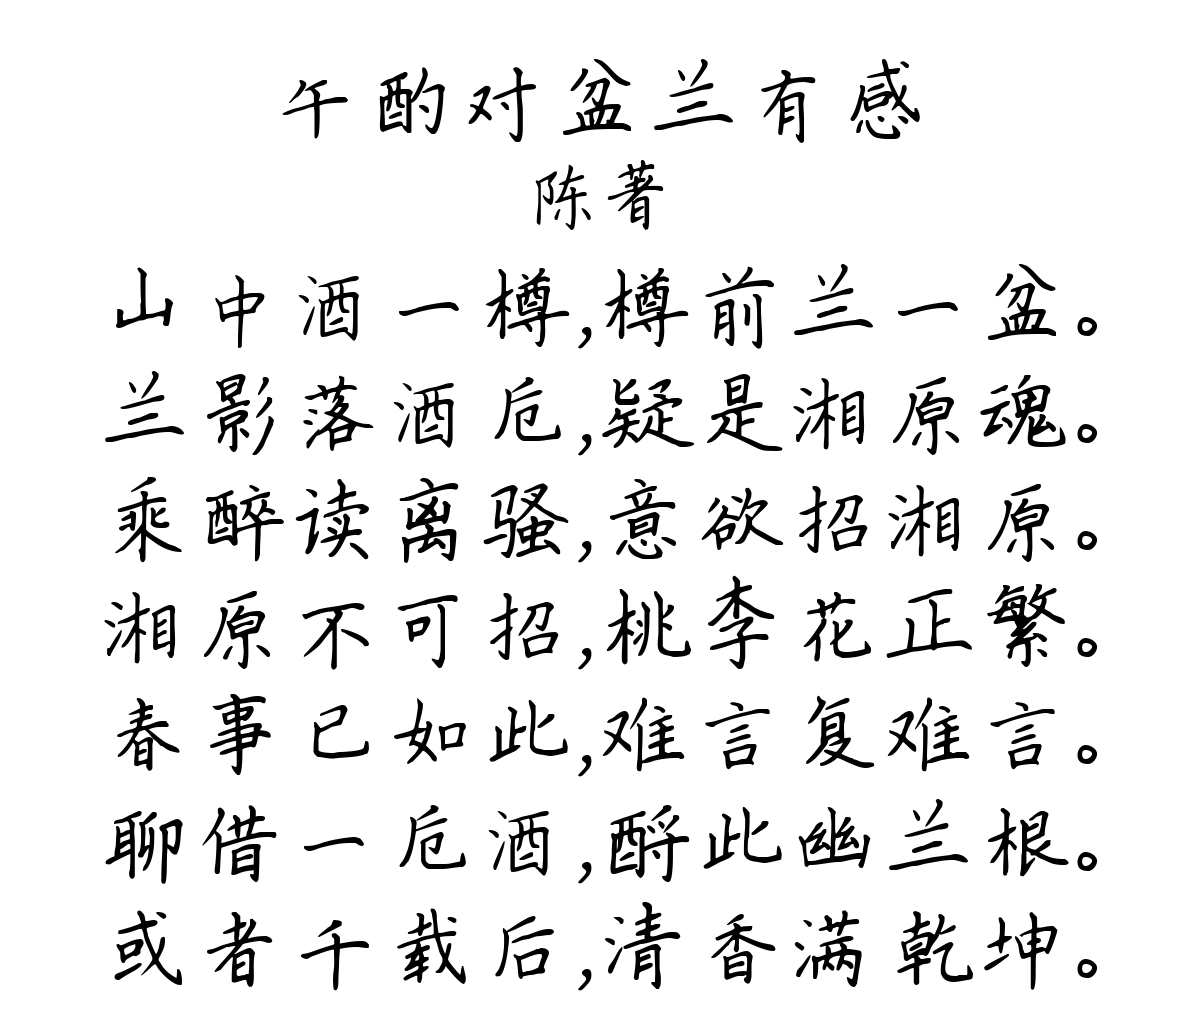 午酌对盆兰有感
陈著
山中酒一樽,樽前兰一盆。
兰影落酒卮,疑是湘原魂。
乘醉读离骚,意欲招湘原。
湘原不可招,桃李花正繁。
春事已如此,难言复难言。
聊借一卮酒,酹此幽兰根。
或者千载后,清香满乾坤。